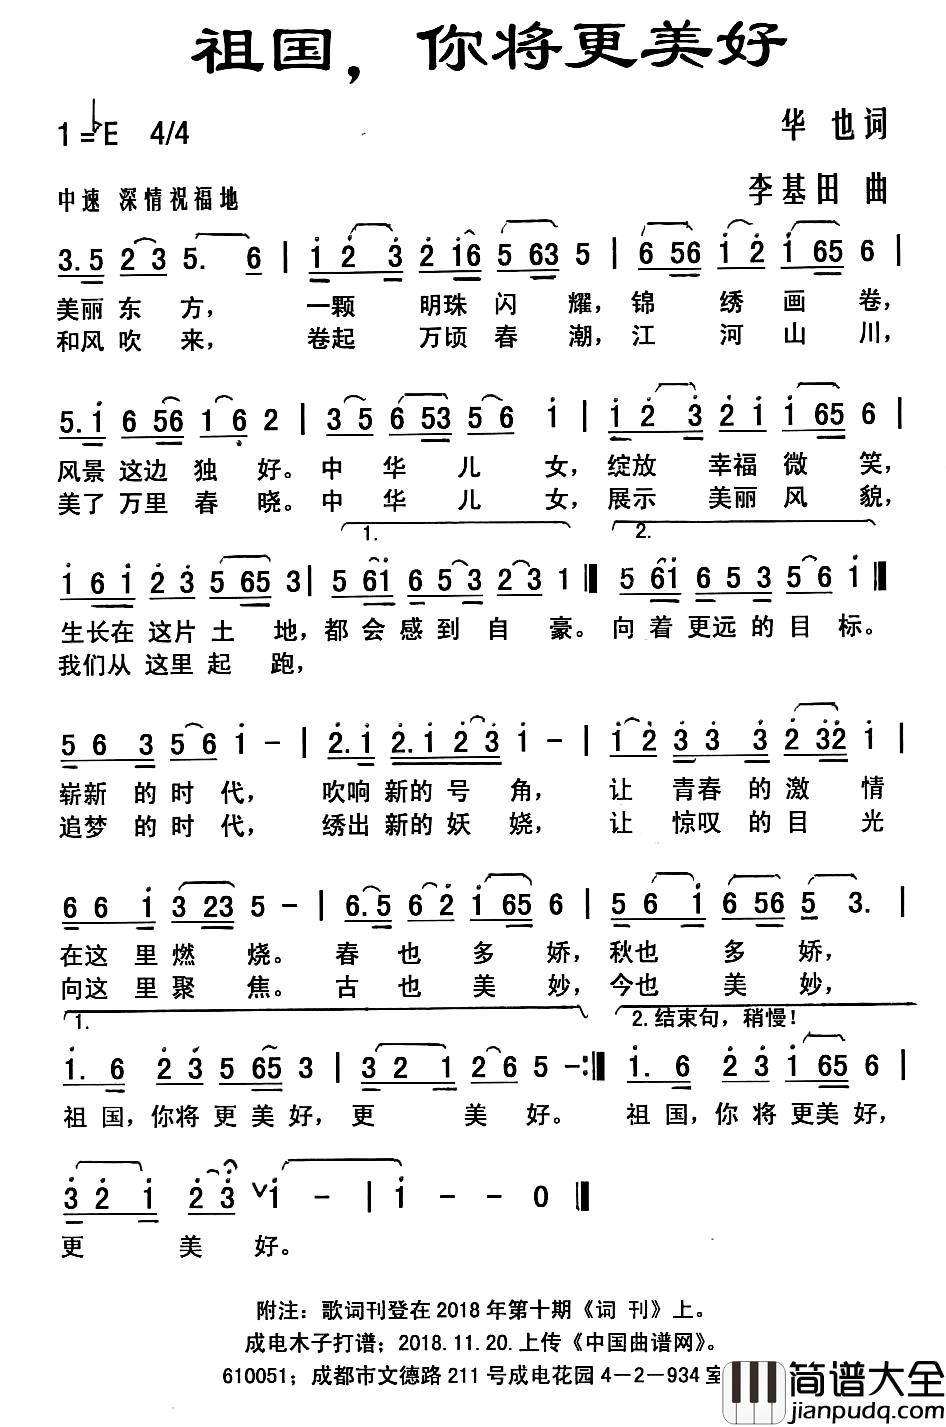 祖国，你将更美好
1=♭E 4/4
华 也 词
中速 深情祝福地
李基田 曲
3.5 2 3 5. 6 | 1 2 3 2 16 5 63 5 | 6 56 1 2 1 65 6 |
美丽 东 方， 一颗 明珠 闪 耀， 锦 绣 画 卷，
和风 吹 来， 卷起 万顷 春 潮， 江 河 山 川，
5.1 6 56 1 6 2 | 3 5 6 53 5 6 1 | 1 2 3 2 1 1 65 6 |
风景 这边 独 好。 中 华 儿 女， 绽放 幸福 微 笑，
美了 万里 春 晓。 中 华 儿 女， 展示 美丽 风 貌，
1. 2.
1 6 1 2 3 5 65 3 | 5 61 6 5 3 2 3 1 ‖ 5 61 6 5 3 5 6 1 ‖
生长在 这片 土 地， 都 会 感 到 自 豪。 向 着 更远 的 目 标。
我们从 这里 起 跑，
5 6 3 5 6 1 - | 2.1 2.1 2 3 1 - | 1 2 3 3 3 2 32 1 |
崭新 的 时 代， 吹响 新的 号 角， 让 青春 的 激 情
追梦 的 时 代， 绣出 新的 妖 娆， 让 惊叹 的 目 光
6 6 1 3 23 5 - | 6.5 6 2 1 65 6 | 5 6 1 6 56 5 3. |
在这 里 燃 烧。 春 也 多 娇， 秋也 多 娇，
向这 里 聚 焦。 古 也 美 妙， 今也 美 妙，
1. 2.结束句，稍慢！
1. 6 2 3 5 65 3 | 3 2 1 2 6 5 - :‖ 1. 6 2 3 1 65 6 |
祖 国，你将 更 美 好， 更 美 好。 祖 国，你 将 更美 好，
3 2 1 2 3 ∨ 1 - | 1 - - 0 ‖
更 美 好。
附注：歌词刊登在2018年第十期《词 刊》上。
成电木子打谱；2018.11.20.上传《中国曲谱网》。
610051；成都市文德路211号成电花园4－2－934室
简谱大全
jianpudq.com